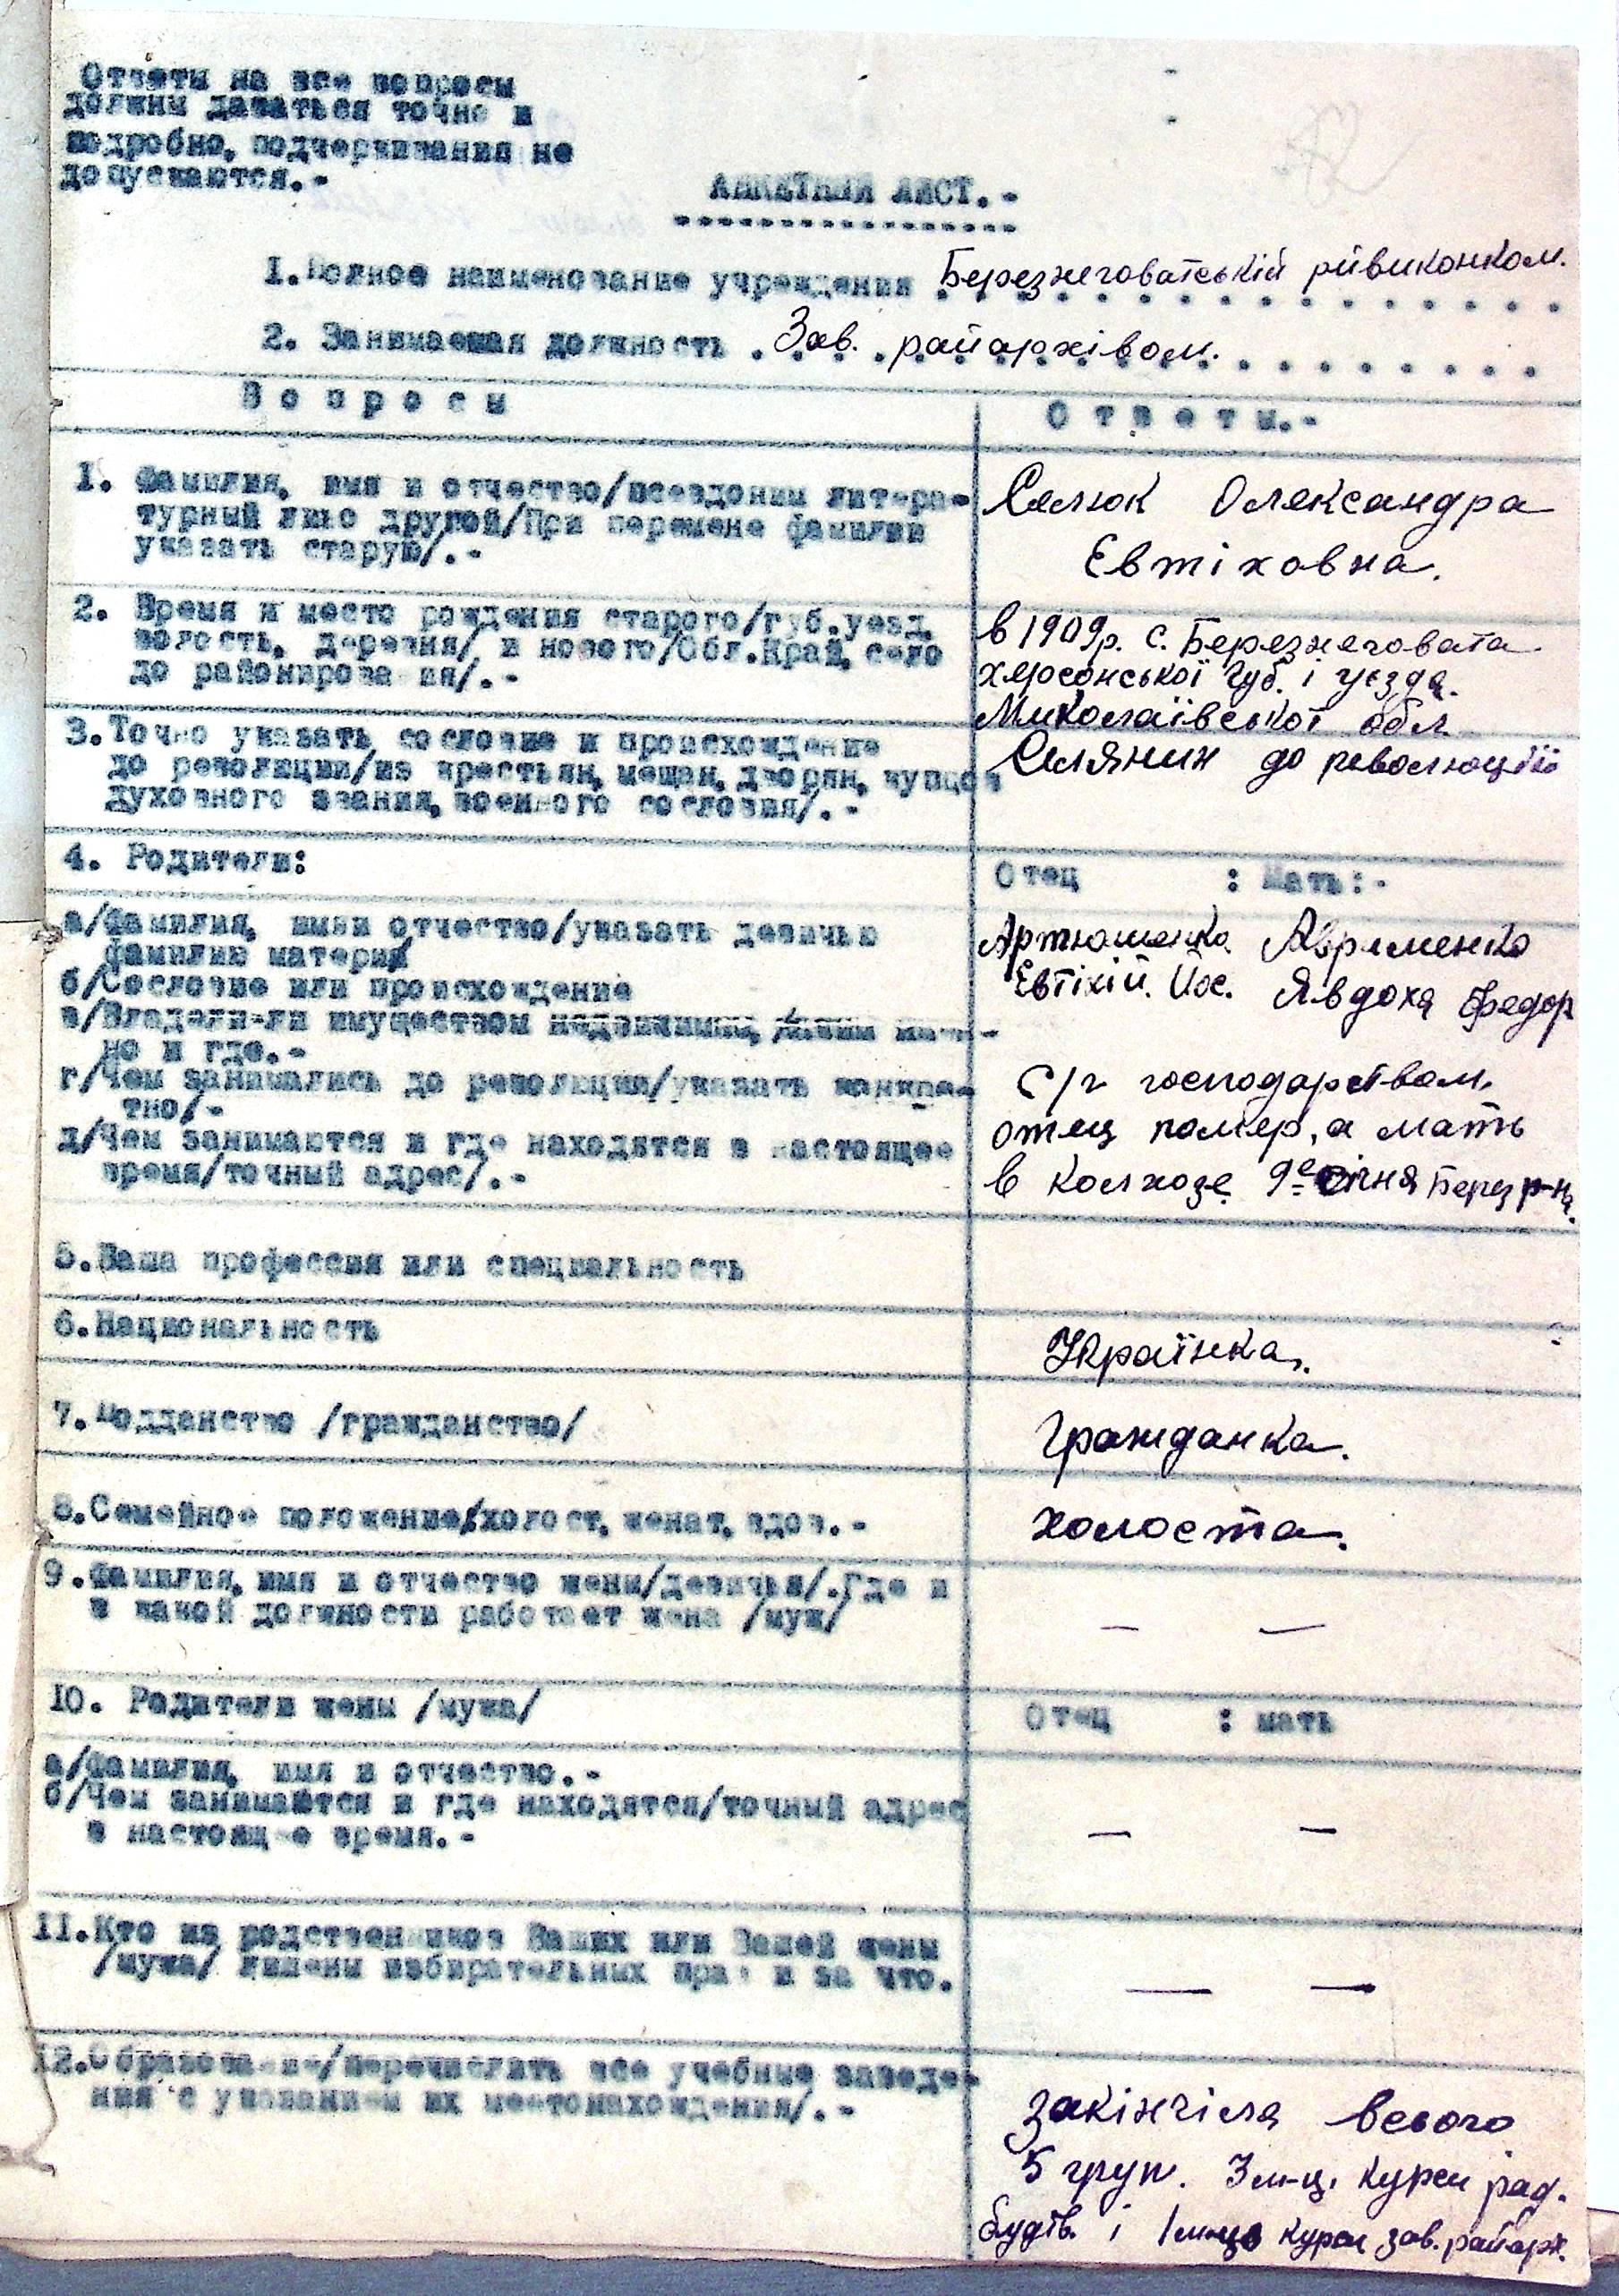 Ответы на все вопросы
должны даваться точно и
подробно, подчеркивания не
допускаются.-
АНКЕТНЫЙ ЛИСТ.-
1. Полное наименование учреждения Березнеговатській рйвиконком.
2. Занимаемая должность . Зав. райархівом.
Вопросы
Ответы.-
1. Фамилия, имя и отчество/псевдоним литера-
турный либо другой/При перемене фамилии
указать старую/.-
Селюк Олександра
Евтіховна.
2. Время и место рождения старого/губ.уезд
волость, деревня/ и нового/Обл.Край, село
до районирования/.-
в 1909р. с. Березнеговата
Херсонської губ. і уезда.
Миколаївської обл.
3. Точно указать сословие и происхождение
до революции/из крестьян, мещан, дворян, купцов
духовного звания, военного сословия/.-
Селянин до революції
4. Родители:
Отец : Мать:-
а/Фамилия, имя и отчество/указать девичью
фамилию матери
б/Сословие или происхождение
в/Владели-ли имуществом недвижимым, каким имен-
но и где.-
г/Чем занимались до революции/указать конкре-
тно/-
д/Чем занимаются и где находятся в настоящее
время/точный адрес/.-
Артюшенко Авременко
Евтіхій. Йос. Явдоха Федор
С/г господарством,
отец помер, а мать
в колхозе 9е січня Берез р-на.
5. Ваша профессия или специальность
6. Национальность
Українка.
7. Подданство /гражданство/
Гражданка.
8. Семейное положение/холост, женат, вдов.-
холоста.
9. Фамилия, имя и отчество жены/девичья/.Где и
в какой должности работает жена /муж/
— —
10. Родители жены /мужа/
Отец : мать
а/Фамилия, имя и отчество.-
б/Чем занимаются и где находятся/точный адрес
в настоящее время.-
— —
11. Кто из родственников Ваших или Вашей жены
/мужа/ лишены избирательных прав и за что.
— —
12. Образование/перечислять все учебные заведе-
ния с указанием их местонахождения/.-
Закінчіла всього
5 груп. 3 м-ц. курси рад.
будів. і 1 м-цо курси зав. райарх.